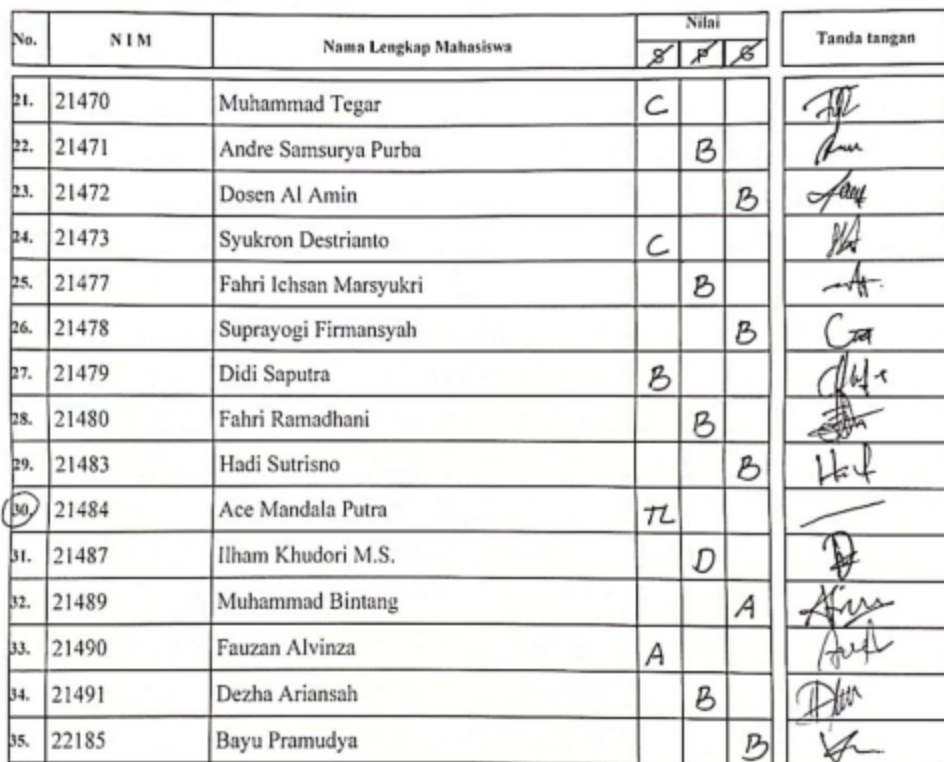 No. NIM Nama Lengkap Mahasiswa Nilai Tanda tangan
S P G
21. 21470 Muhammad Tegar C
22. 21471 Andre Samsurya Purba B
23. 21472 Dosen Al Amin B
24. 21473 Syukron Destrianto C
25. 21477 Fahri Ichsan Marsyukri B
26. 21478 Suprayogi Firmansyah B
27. 21479 Didi Saputra B
28. 21480 Fahri Ramadhani B
29. 21483 Hadi Sutrisno B
30. 21484 Ace Mandala Putra TL
31. 21487 Ilham Khudori M.S. D
32. 21489 Muhammad Bintang A
33. 21490 Fauzan Alvinza A
34. 21491 Dezha Ariansah B
35. 22185 Bayu Pramudya B